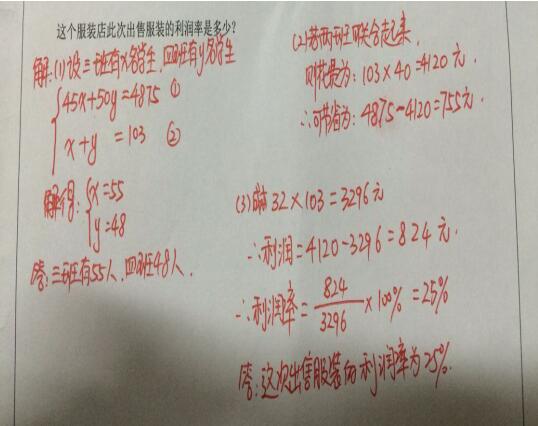 这个服装店此次出售服装的利润率是多少?
解:(1)设三班有x名学生,四班有y名学生
45x+50y=4875 ①
x+y =103 ②
解得: x=55
y=48
答:三班有55人,四班48人.
(2)若两班联合起来,
则花最为: 103×40=4120元.
∴可节省为: 4875-4120=755元.
(3) 32×103=3296元
∴利润=4120-3296=824元.
∴利润率= 824/3296 ×100% =25%
答:这次出售服装的利润率为25%.